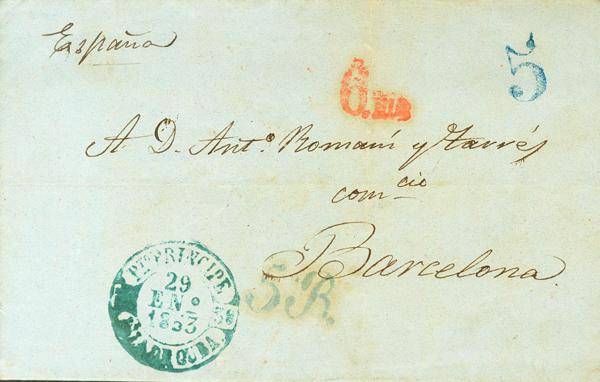 España
5
6. RLS
A D. Antº. Romaní y Tarrés
comcio
Barcelona.
PTO PRINCIPE
29
ENº
1853
ISLA DE CUBA
S.R.